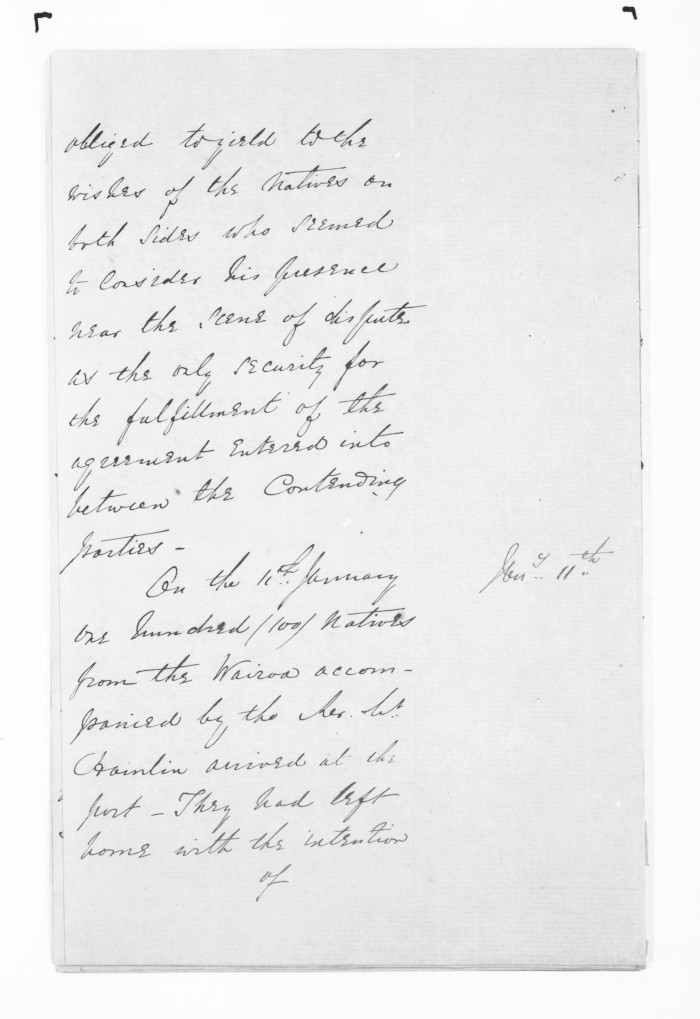 obliged to yield to the
wishes of the Natives on
both sides who seemed
to consider his presence
near the scene of dispute
as the only security for
the fulfillment of the
agreement entered into
between the Contending
parties -
On the 11th. January
Jany. 11th.
one hundred (100) Natives
from the Wairoa accom-
panied by the Rev. Mr.
Hamlin arrived at the
port - They had left
home with the intention
of